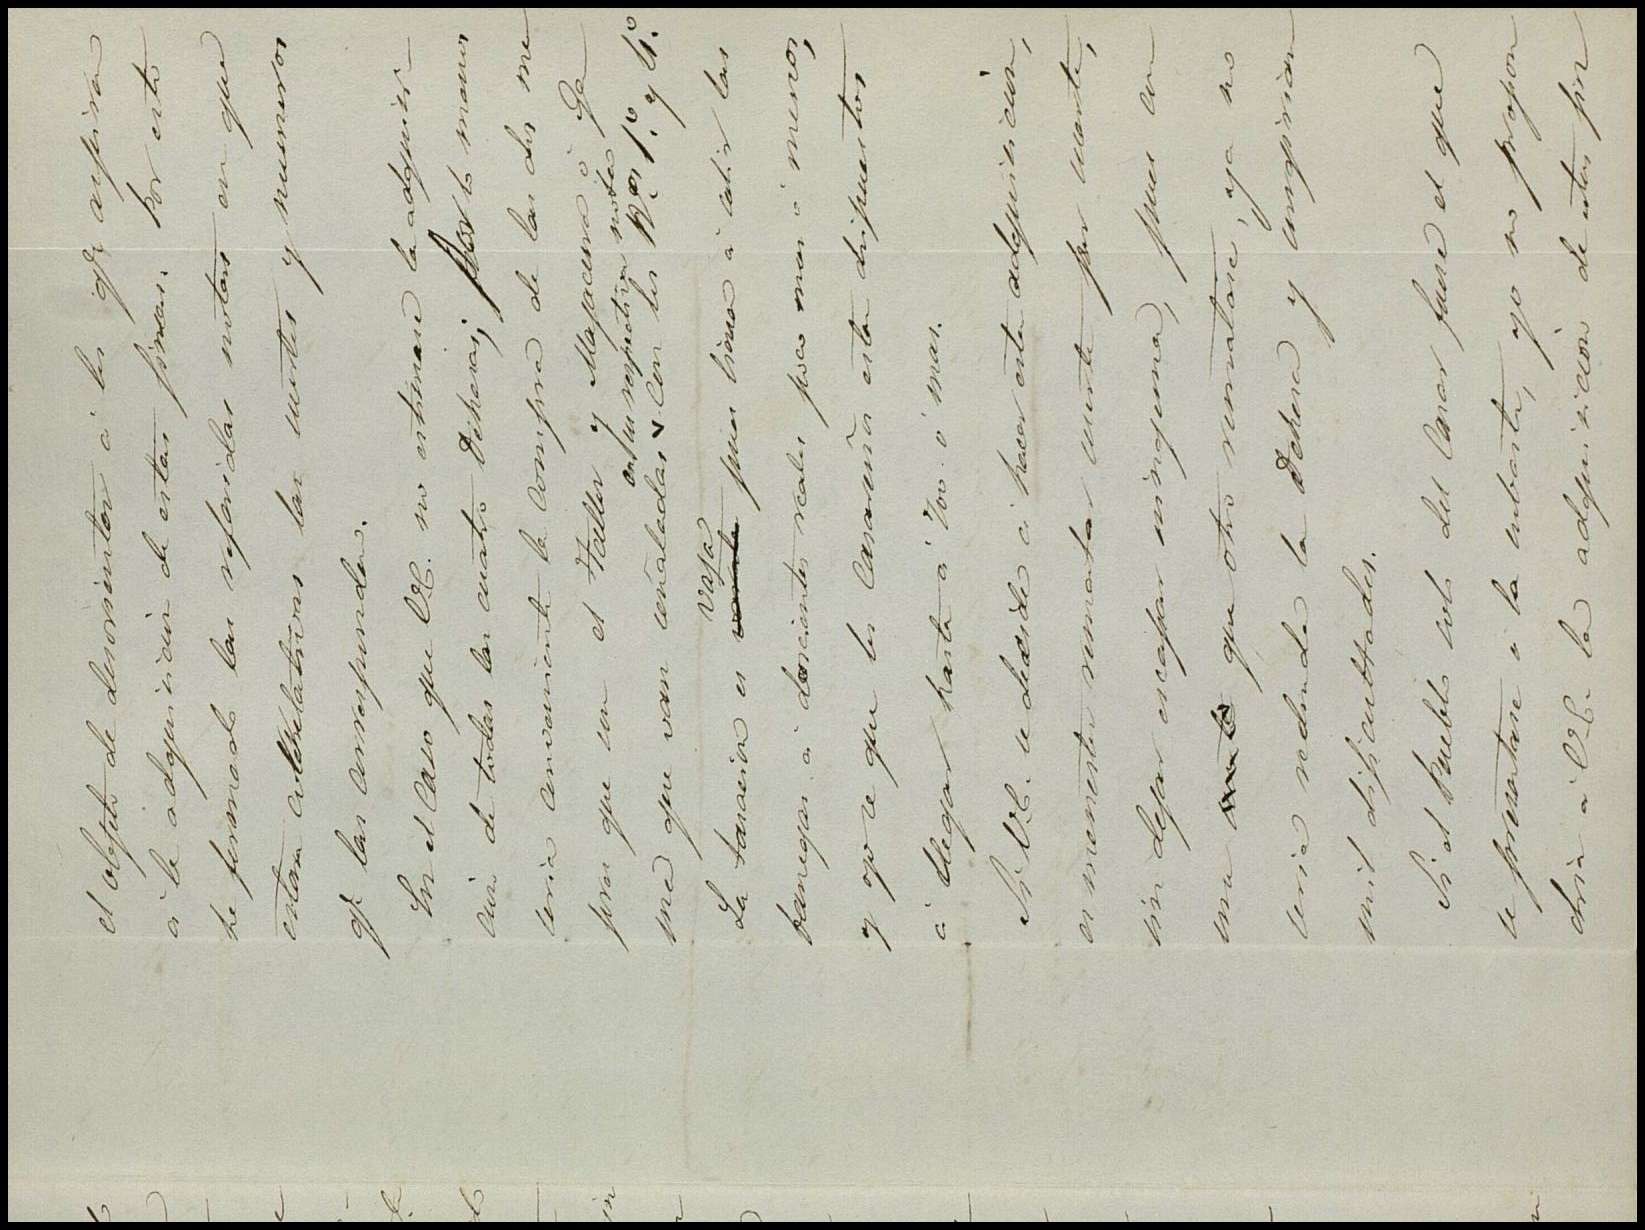 el objeto de desorientar á los qe. aspiran
á la adquisicion de estas fincas. Por esto
he formado las referidas notas en que
estan correlativas las suertes y numeros
qe. las corresponden.
En el Caso que VE. no estimase la adquisi
cion de todas las cuatro Dehesas; por lo menos
seria conveniente la Compra de las dos me
jores que son el Haller y Mayacuna ó Ya
ma que van señaladas en su respectiva nota Con los Nos. 1º. y 4º.
La tasacion es baja pues hirna á salir las
fanegas á doscientos reales poco mas ó menos,
y yo se que los Casasuña estan dispuestos
á llegar hasta á 700. ó mas.
Si VE. se decide á hacer esta adquisicion,
es menester rematar suerte por suerte,
sin dejar escapar ninguna, pues con
una que otro rematase, ya no
seria redonda la Dehesa y empiezan
mil dificultades.
Si el Pueblo solo del Casar fuese el que
se presentase á la subasta, yo no propon
dria á VE. la adquisicion de estas fin